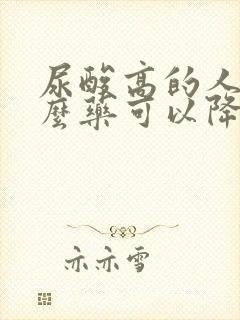 尿酸高的人
麼藥可以降
亦亦雪